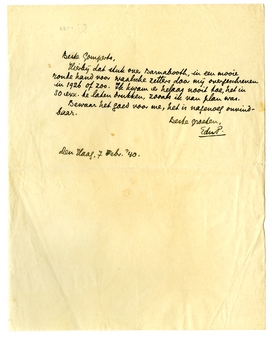 Beste Gomperts,
Hierbij dat stuk over Barnabooth, in een mooie
ronde hand voor waalsche zetters door mij overgeschreven
in 1926 of zoo. Ik kwam er helaas nooit toe, het in
30 exx. te laten drukken, zooals ik van plan was.
Bewaar het goed voor me, het is nagenoeg onvind-
baar.
Beste groeten,
EduP.
Den Haag, 7 Febr. '40.